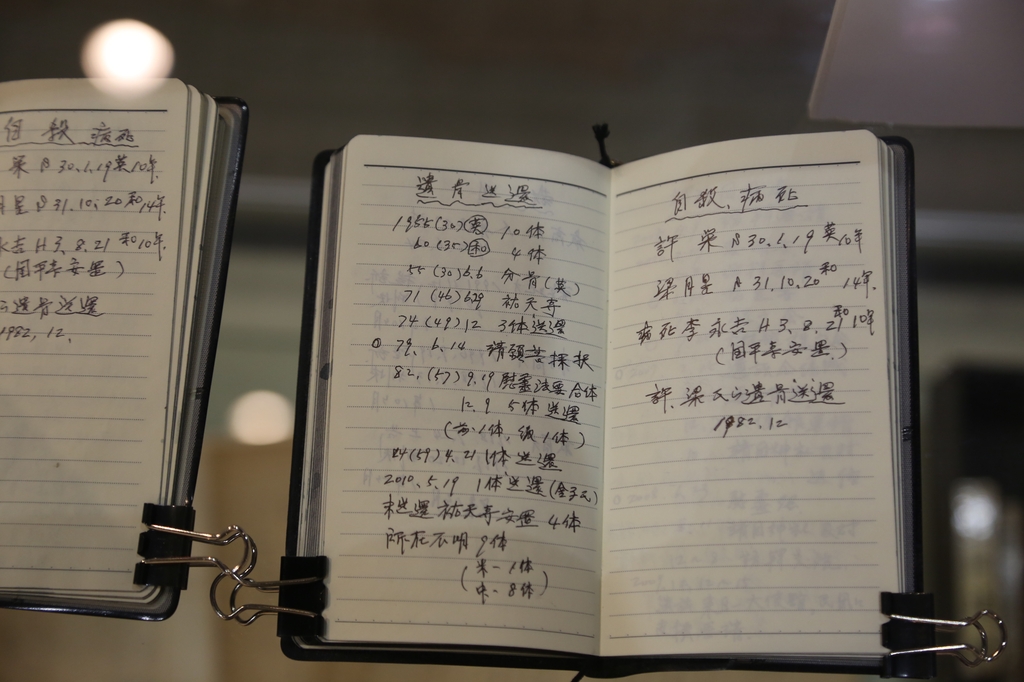 自殺 病死
梁 S 30.1.19 英10年
月星 S 31.10.20 和14年
永吉 H 3.8.21 和10年
(国平寺安置)
遺骨送還
1982.12.
遺骨送還
1955(30)(英) 10体
60(35)(和) 4体
55(30)6.6 分骨(英)
71(46)6.29 祐天寺
74(49)12 3体送還
79.6.14 請願書採択
82.(57)9.19 慰霊法要合体
12.9 5体送還
84(59)4.21 1体送還
2010.5.19 1体送還(金子氏)
未送還 祐天寺安置 4体
所在不明 9体
米-1体
中-8体
自殺、病死
許 栄 S 30.1.19 英10年
梁月星 S 31.10.20 和14年.
病死 李永吉 H 3.8.21 和10年
(国平寺安置.)
許、梁氏の遺骨送還
1982.12